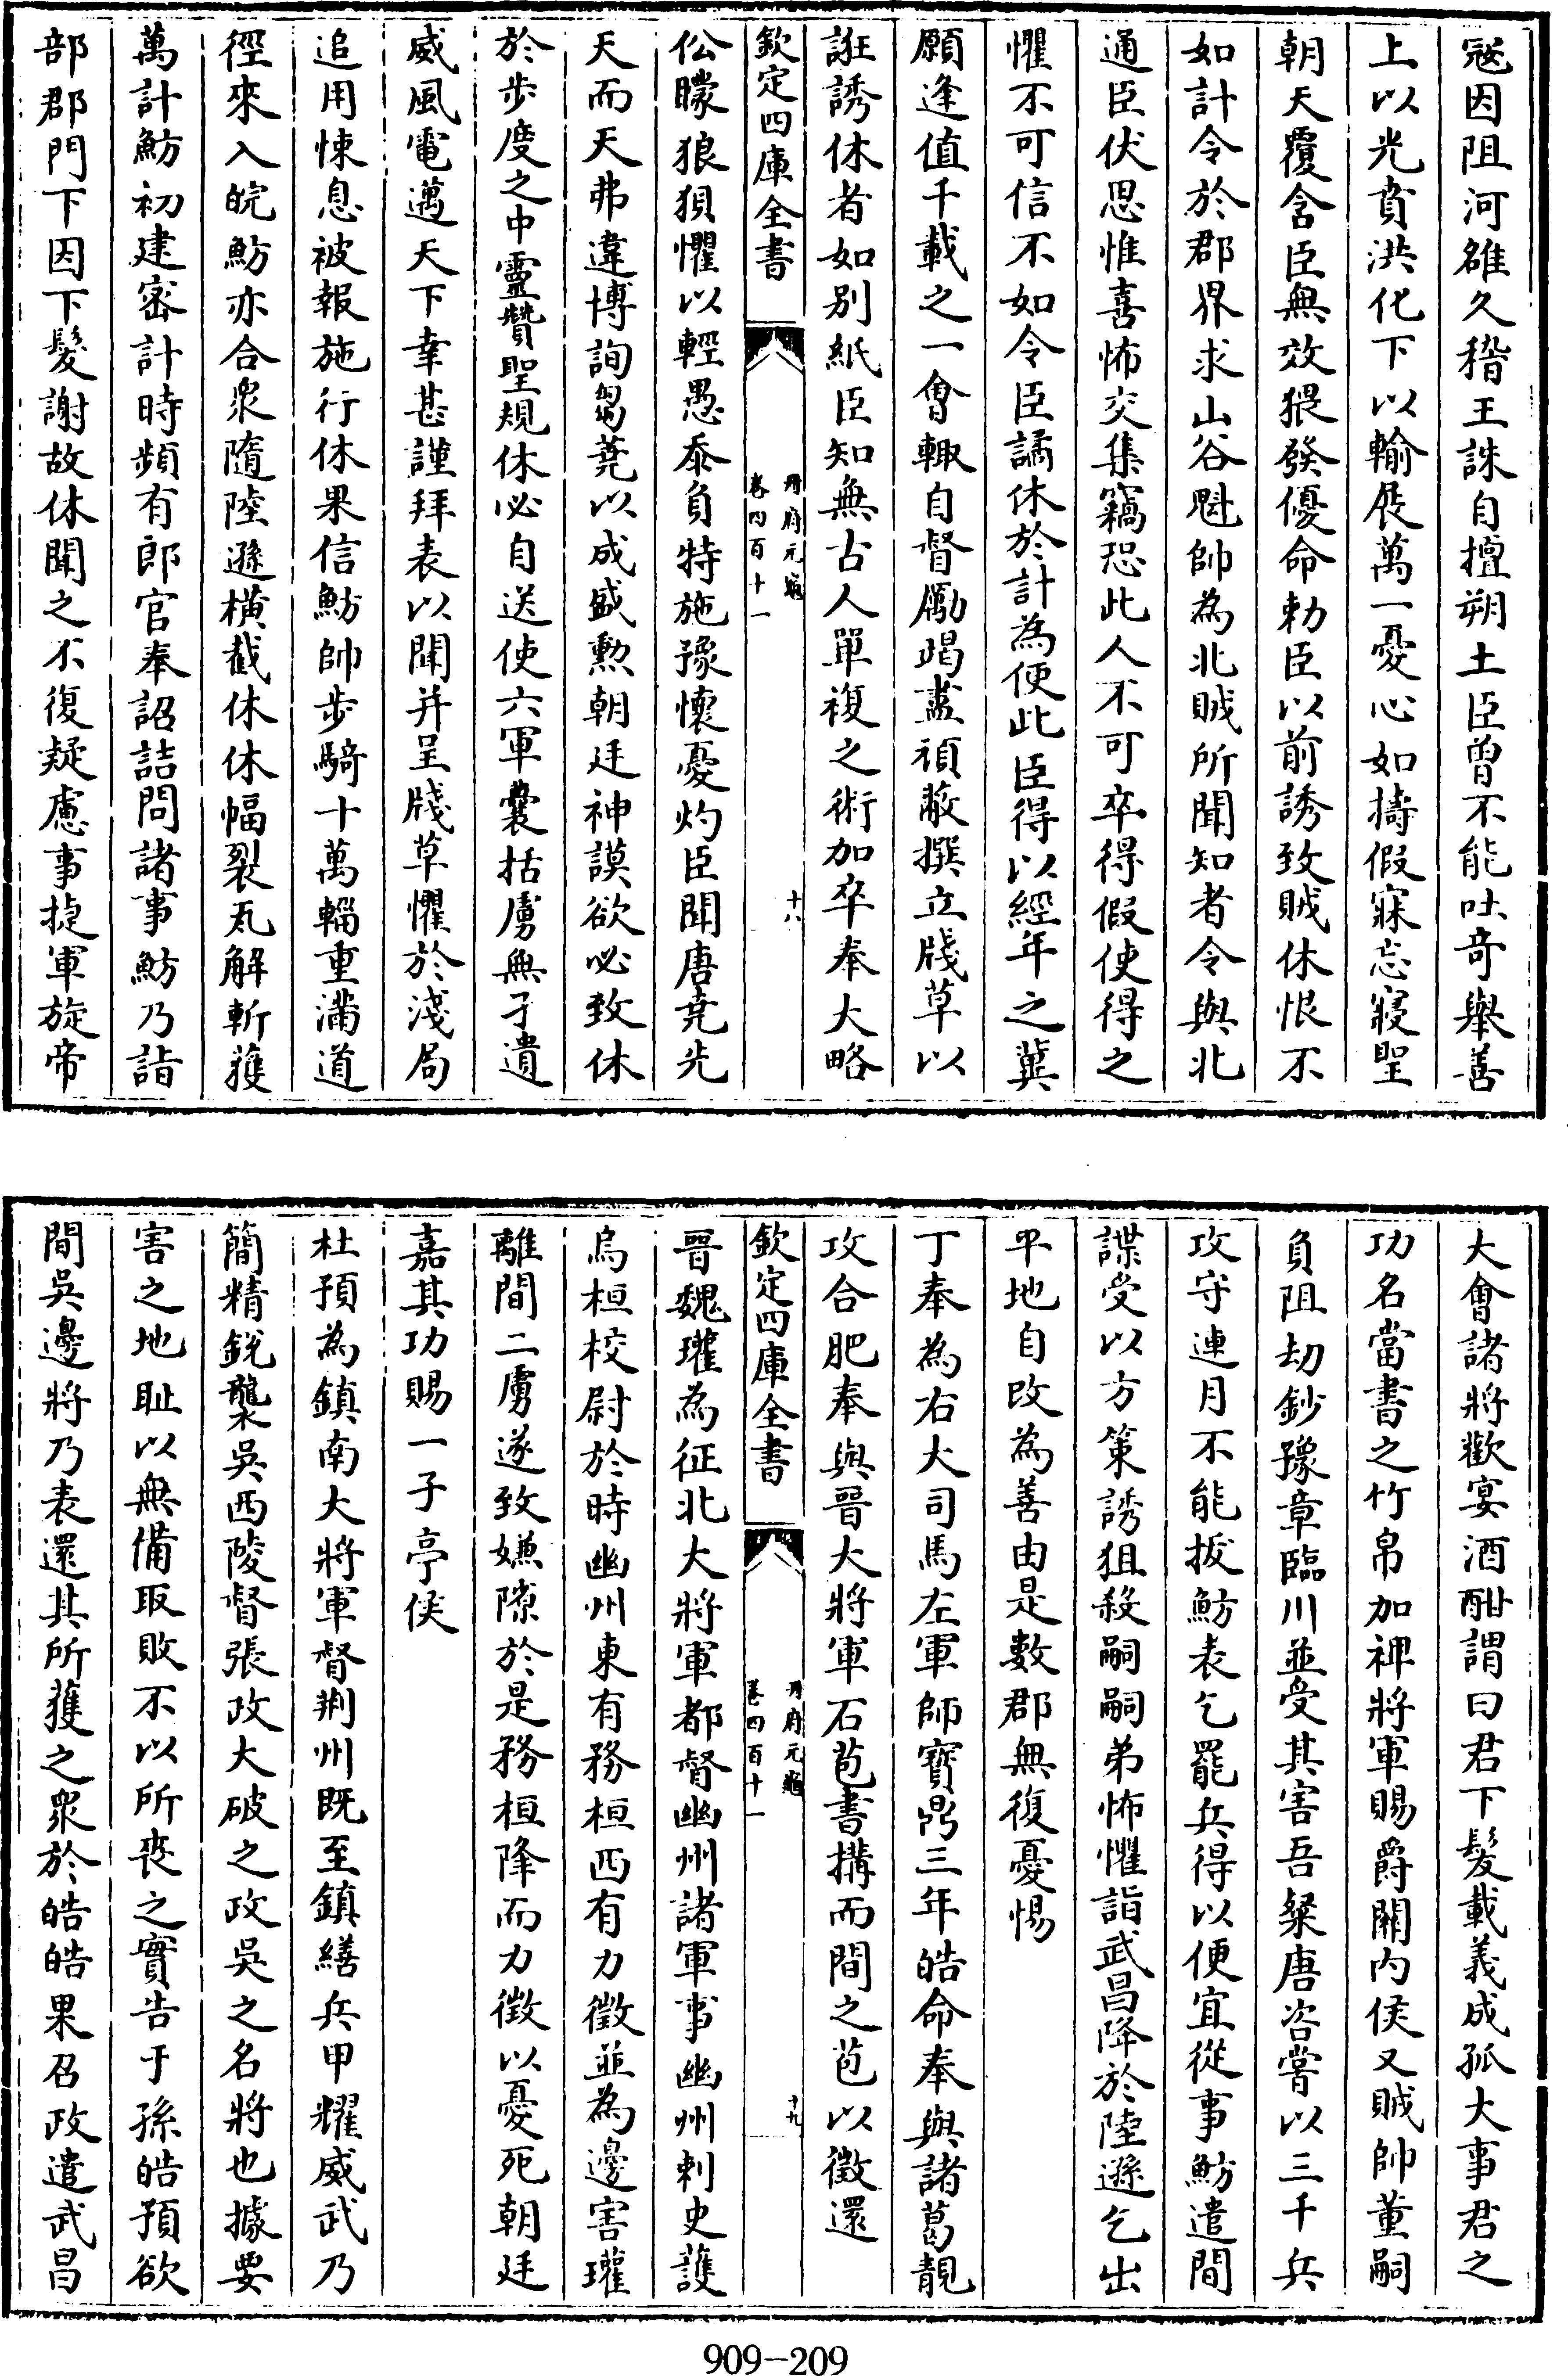 寇因阻河雒久稽王誅自擅朔土臣曽不能吐竒舉善
上以光賁洪化下以輸展萬一憂心如擣假寐忘寢聖
朝天覆含臣無效猥發優命勅臣以前誘致賊休恨不
如計令於郡界求山谷魁帥為北賊所聞知者令與北
通臣伏思惟喜怖交集竊恐此人不可卒得假使得之
懼不可信不如令臣譎休於計為便此臣得以經年之冀
願逢值千載之一㑹輙自督勵竭盡頑蔽撰立牋草以
誑誘休者如别紙臣知無古人單複之術加卒奉大略
欽定四庫全書
冊府元龜
卷四百十一
十八
伀矇狼狽懼以輕愚忝負特施豫懷憂灼臣聞唐堯先
天而天弗違博詢芻蕘以成盛勲朝廷神謨欲必致休
於步度之中靈贊聖規休必自送使六軍囊括虜無孑遺
威風電邁天下幸甚謹拜表以聞并呈牋草懼於淺局
追用悚息被報施行休果信魴帥步騎十萬輜重滿道
徑來入皖魴亦合衆隨陸遜横截休休幅裂瓦解斬獲
萬計魴初建密計時頻有郎官奉詔詰問諸事魴乃詣
部郡門下因下髮謝故休聞之不復疑慮事捷軍旋帝
大㑹諸將歡宴酒酣謂曰君下髮載義成孤大事君之
功名當書之竹帛加裨將軍賜爵關内侯又賊帥董嗣
負阻刼鈔豫章臨川並受其害吾粲唐咨嘗以三千兵
攻守連月不能拔魴表乞罷兵得以便宜從事魴遣間
諜受以方策誘狙殺嗣嗣弟怖懼詣武昌降於陸遜乞出
平地自改為善由是數郡無復憂惕
丁奉為右大司馬左軍師寳鼎三年皓命奉與諸葛靚
攻合肥奉與晉大將軍石苞書搆而間之苞以徵還
欽定四庫全書
冊府元龜
卷四百十一
十九
晉魏瓘為征北大將軍都督幽州諸軍事幽州刺史護
烏桓校尉於時幽州東有務桓西有力徵並為邊害瓘
離間二虜遂致嫌隙於是務桓降而力徵以憂死朝廷
嘉其功賜一子亭侯
杜預為鎮南大將軍督荆州既至鎮繕兵甲耀威武乃
簡精鋭襲吳西陵督張政大破之政吳之名將也據要
害之地耻以無備取敗不以所喪之實告于孫皓預欲
間吳邊將乃表還其所獲之衆於皓皓果召政遣武昌
909-209